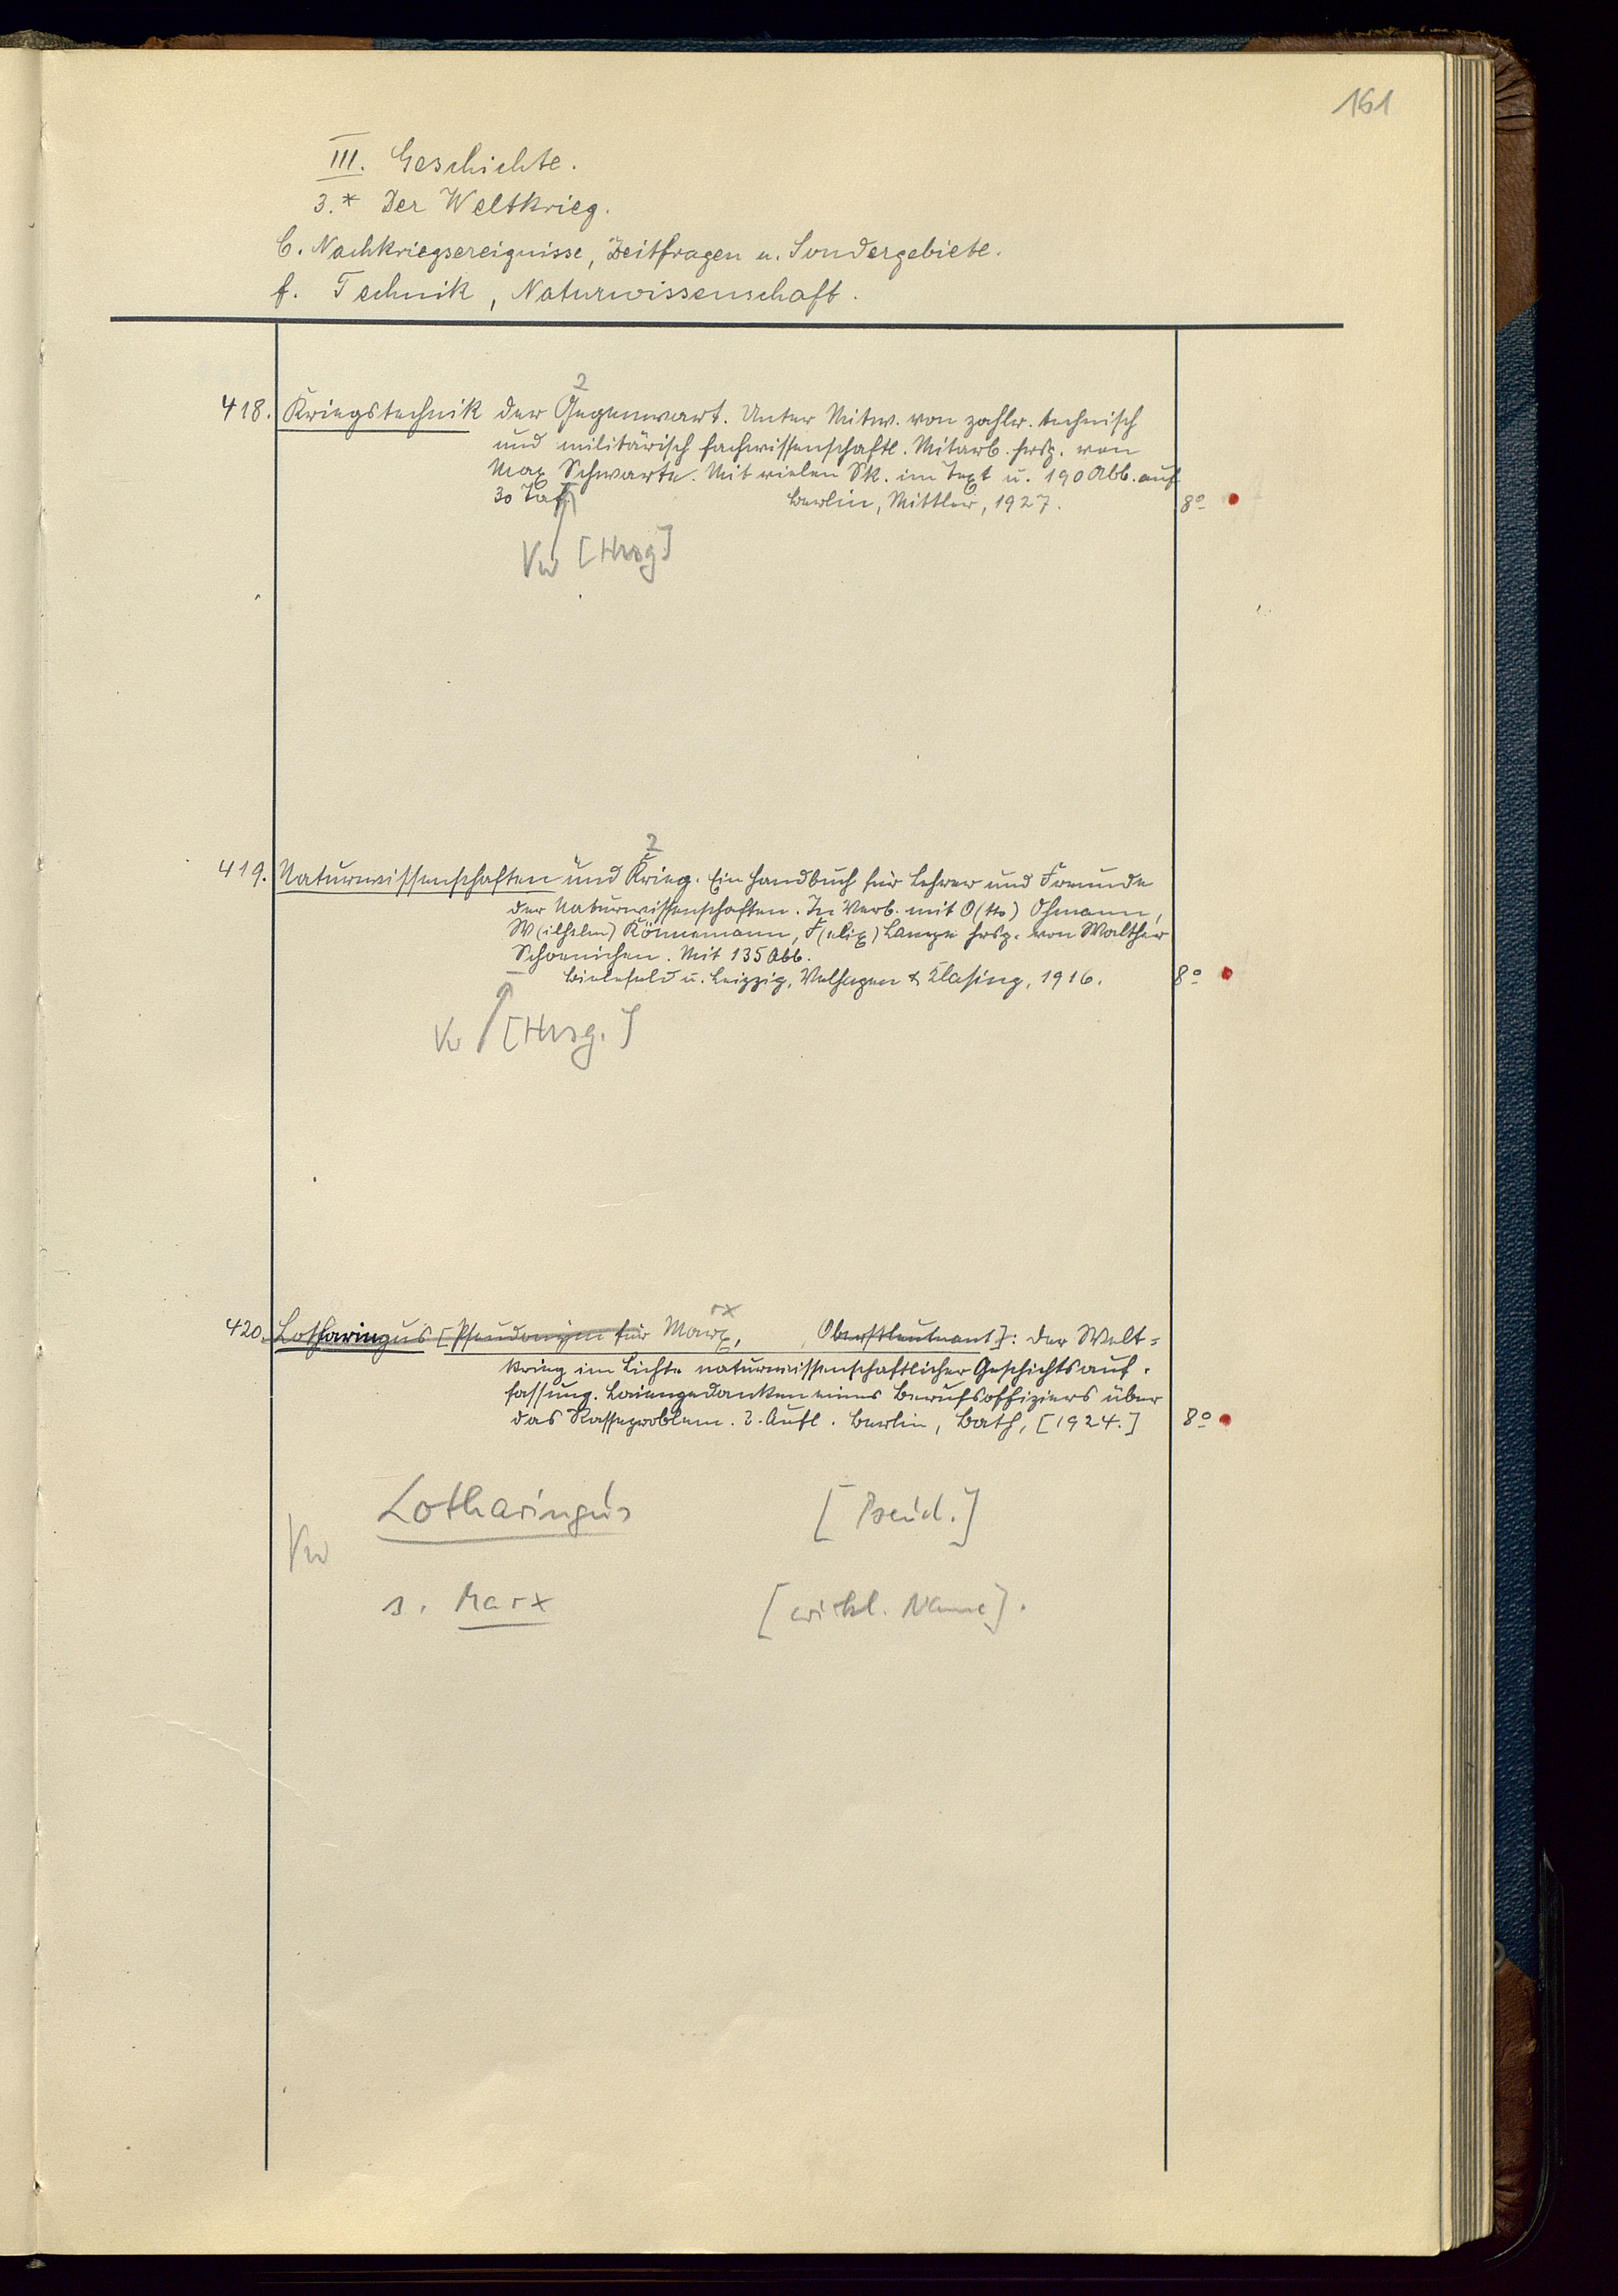 161
III. Geschichte.
3.* Der Weltkrieg.
C. Nachkriegsereignisse, Zeitfragen u. Sondergebiete.
f. Technik, Naturwissenschaft.
2
418. Kriegstechnik der Gegenwart. Unter Mitw. von zahlr. technisch
und militärisch fachwissenschaftl. Mitarb. hrsg. von
Max Schwarte. Mit vielen Sk. im Text u. 190 Abb. auf
30 Taf. Berlin, Mittler, 1927. 8°
Vw [Hrsg]
2
419. Naturwissenschaften und Krieg. Ein Handbuch für Lehrer und Freunde
der Naturwissenschaften. In Verb. mit O(tto) Ohmann,
W(ilhelm) Könnemann, F(elix) Lampe hrsg. von Walther
Schoenichen. Mit 135 Abb.
Bielefeld u. Leipzig, Velhagen & Klasing, 1916. 8°
Vw [Hrsg.]
rx
420. Lotharingus [Pseudonym für Marx, , Oberstleutnant]: Der Welt=
krieg im Lichte naturwissenschaftlicher Geschichtsauf-
fassung. Laiengedanken eines Berufsoffiziers über
das Rasseproblem. 2. Aufl. Berlin, Bath, [1924.] 8°
Lotharingus [Pseud.]
Vw
s. Marx [wirkl. Name].